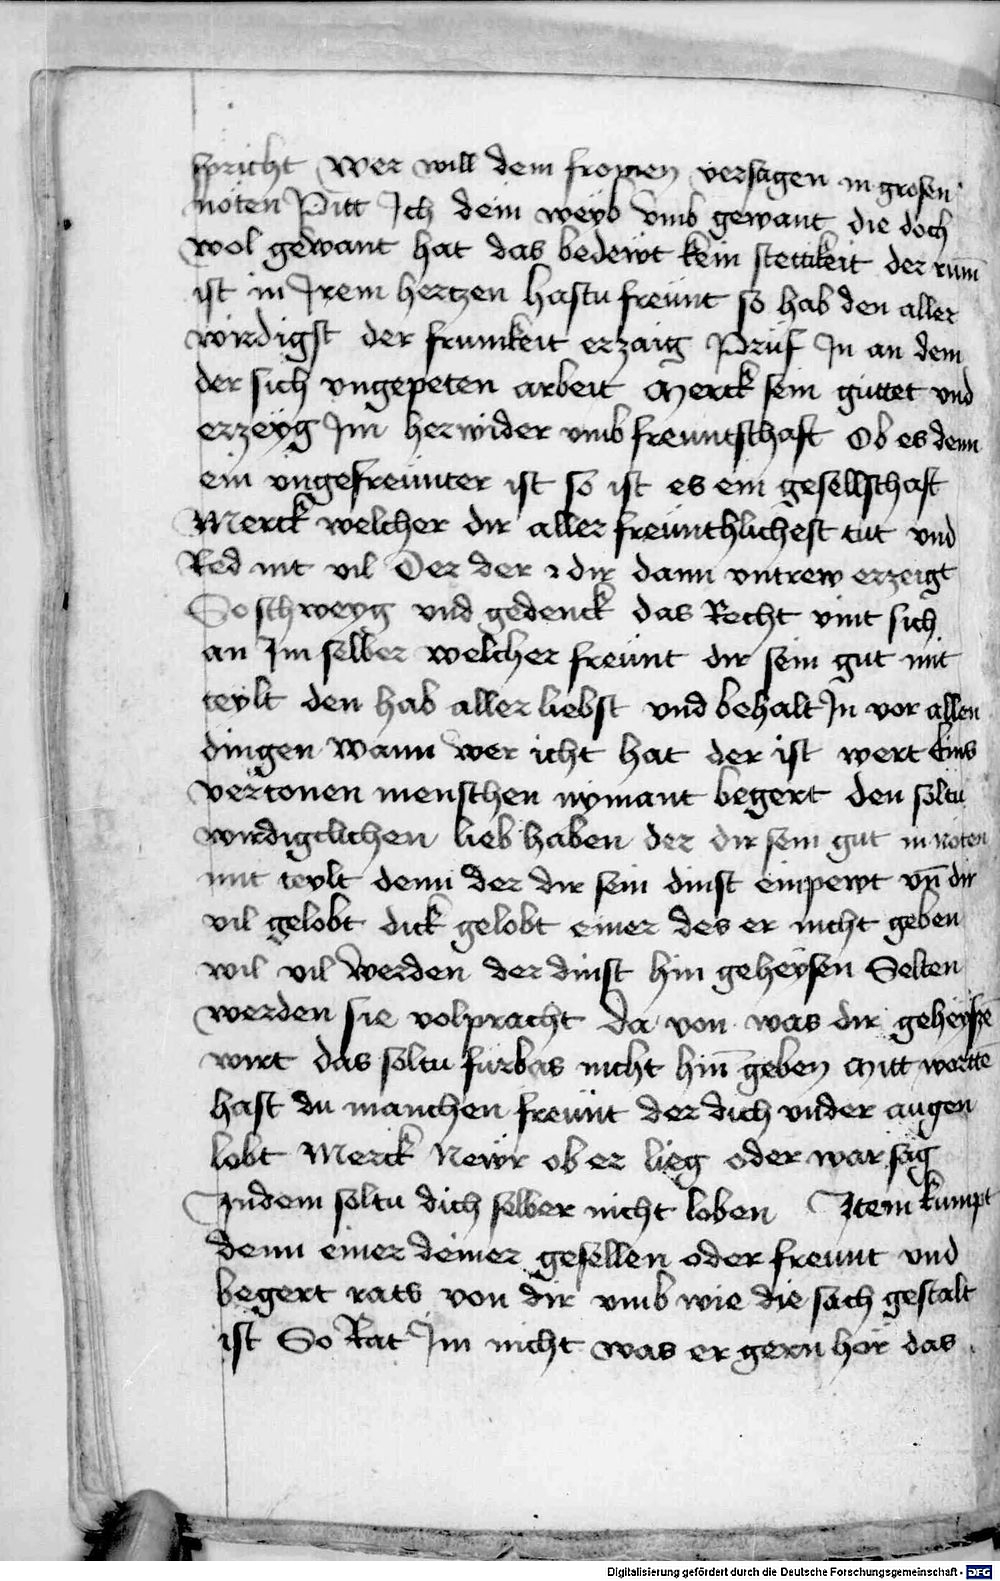 spricht Wer will dem fromen versagen in grosen
nöten Pitt Ich dein weyb vmb gewant die doch
wol gewant hat das bedewt kein stettikeit der rum̄
ist in Irem hertzen hastu freünt so hab den aller
wirdigst der frumkeit erzaig Prüf In an dem
der sich vngepeten arbeit Merck sein guttet vnd
erzeyg Im herwider vmb freuntschaft Ob es denn
ein vngefreünter ist so ist es ein gesellschaft
Merck welcher dir aller freünthlichest tut vnd
Red nit vil Der der dir dann vntrew erzeigt
So schweyg vnd gedenck das Recht vint sich
an Im selber welcher freünt dir sein gut mit
teylt den hab aller liebst vnd behalt In vor allen
dingen Wann wer icht hat der ist wert Eins
vertonen menschen nymant begert den soltu
wirdigclichen lieb haben der dir sein gut in nöten
mit teylt denn der dir sein dinst empewt vn̄ dir
vil gelobt dick gelobt einer des er nicht geben
wil vil werden der dinst hin geheysen Selten
werden sie volpracht da von was dir geheyßē
wirt das soltu fürbas nicht hin̄ geben Mitt worttē
hast du manchen freünt der dich vnder augen
lobt Merck Newr ob er lieg oder war sag
Indem soltu dich selber nicht loben Item kumpt
denn einer deiner gesellen oder freunt vnd
begert rats von dir vmb wie die sach gestalt
ist So Rat Im nicht was er gern hör das
Digitalisierung gefördert durch die Deutsche Forschungsgemeinschaft - DFG